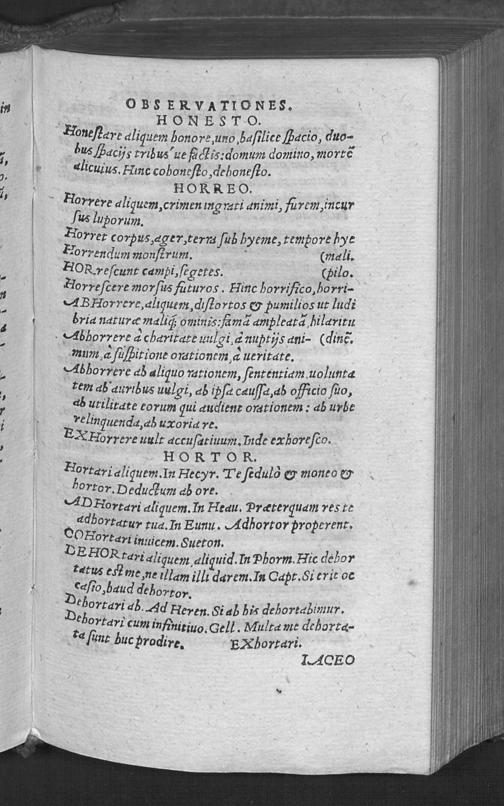 OBSERVATIONES.
HONESTO.
Honestare aliquem honore, uno, basilice spacio, duo-
bus spacijs tribus ue factis: domum domino, mortē
alicuius. Hinc cohonesto, dehonesto.
HORREO.
Horrere aliquem, crimen ingrati animi, furem, incur
sus luporum.
Horret corpus, ager, terra sub hyeme, tempore hye
Horrendum monstrum. (mali.
HORrescunt campi, segetes. (pilo.
Horrescere morsus futuros. Hinc horrifico, horri-
ABHorrere, aliquem, distortos & pumilios ut ludi
bria naturæ maliq́; ominis: famā ampleatā, hilaritu
Abhorrere a charitate uulgi, à nuptijs ani- (dinē.
mum, à suspitione orationem, à ueritate.
Abhorrere ab aliquo rationem, sententiam, uolunta
tem ab auribus uulgi, ab ipsa caussa, ab officio suo,
ab utilitate eorum qui audient orationem: ab urbe
relinquenda, ab uxoria re.
EXHorrere uult accusatiuum. Inde exhoresco.
HORTOR.
Hortari aliquem. In Hecyr. Te sedulò & moneo &
hortor. Deductum ab ore.
ADHortari aliquem. In Heau. Præterquam res te
adhortatur tua. In Eunu. Adhortor properent.
COHortari inuicem. Sueton.
DEHORtari aliquem, aliquid. In Phorm. Hic dehor
tatus est me, ne illam illi darem. In Capt. Si erit oc
casio, haud dehortor.
Dehortari ab. Ad Heren. Si ab his dehortabimur.
Dehortari cum infinitiuo. Gell. Multa me dehorta-
ta sunt huc prodire. EXhortari.
IACEO